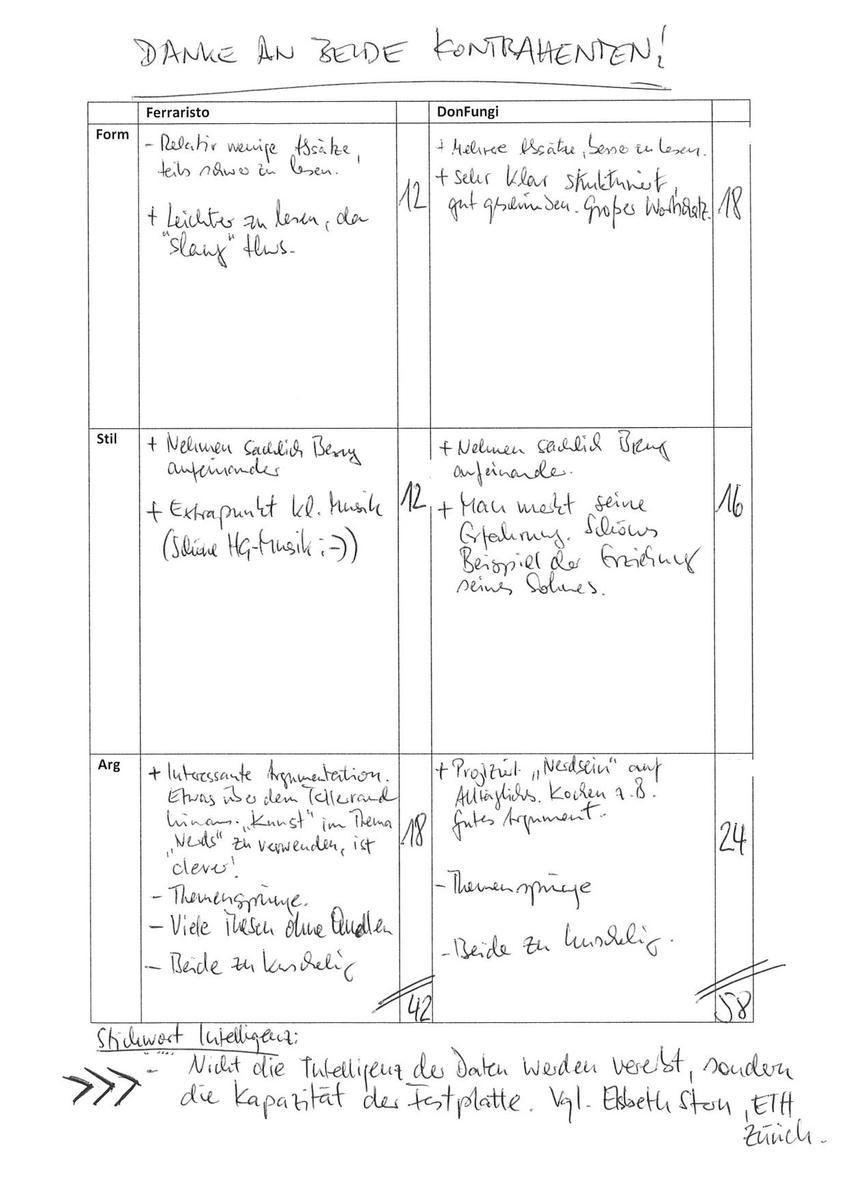 DANKE AN BEIDE KONTRAHENTEN!
Ferraristo
DonFungi
Form
- Relativ wenige Absätze,
teils schwer zu lesen.
+ Leichter zu lesen, da
"Slang"
12
+ Mehrere Absätze, besser zu lesen.
+ Sehr klar strukturiert,
gut geschrieben. Großer Wortschatz.
18
Stil
+ Nehmen sachlich Bezug
aufeinander
+ Extrapunkt kl. Musik
(Schöne HG-Musik ;-))
12
+ Nehmen sachlich Bezug
aufeinander.
+ Man merkt seine
Erfahrung. Schönes
Beispiel der Erziehung
seines Sohnes.
16
Arg
+ Interessante Argumentation.
Etwas über dem Tellerrand
hinaus. „Kunst" im Thema
„Nerds" zu verwenden, ist
clever!
- Themensprünge.
- Viele Thesen ohne Quellen
- Beide zu kuschelig
18
42
+ Projiziert „Nerdsein" auf
Alltägliches. Kochen z.B.
gutes Argument.
- Themensprünge
- Beide zu kuschelig.
24
58
Stichwort Intelligenz:
- Nicht die Intelligenz der Daten werden vererbt, sondern
>>> die Kapazität der Festplatte. Vgl. Elsbeth Stern, ETH
Zürich.